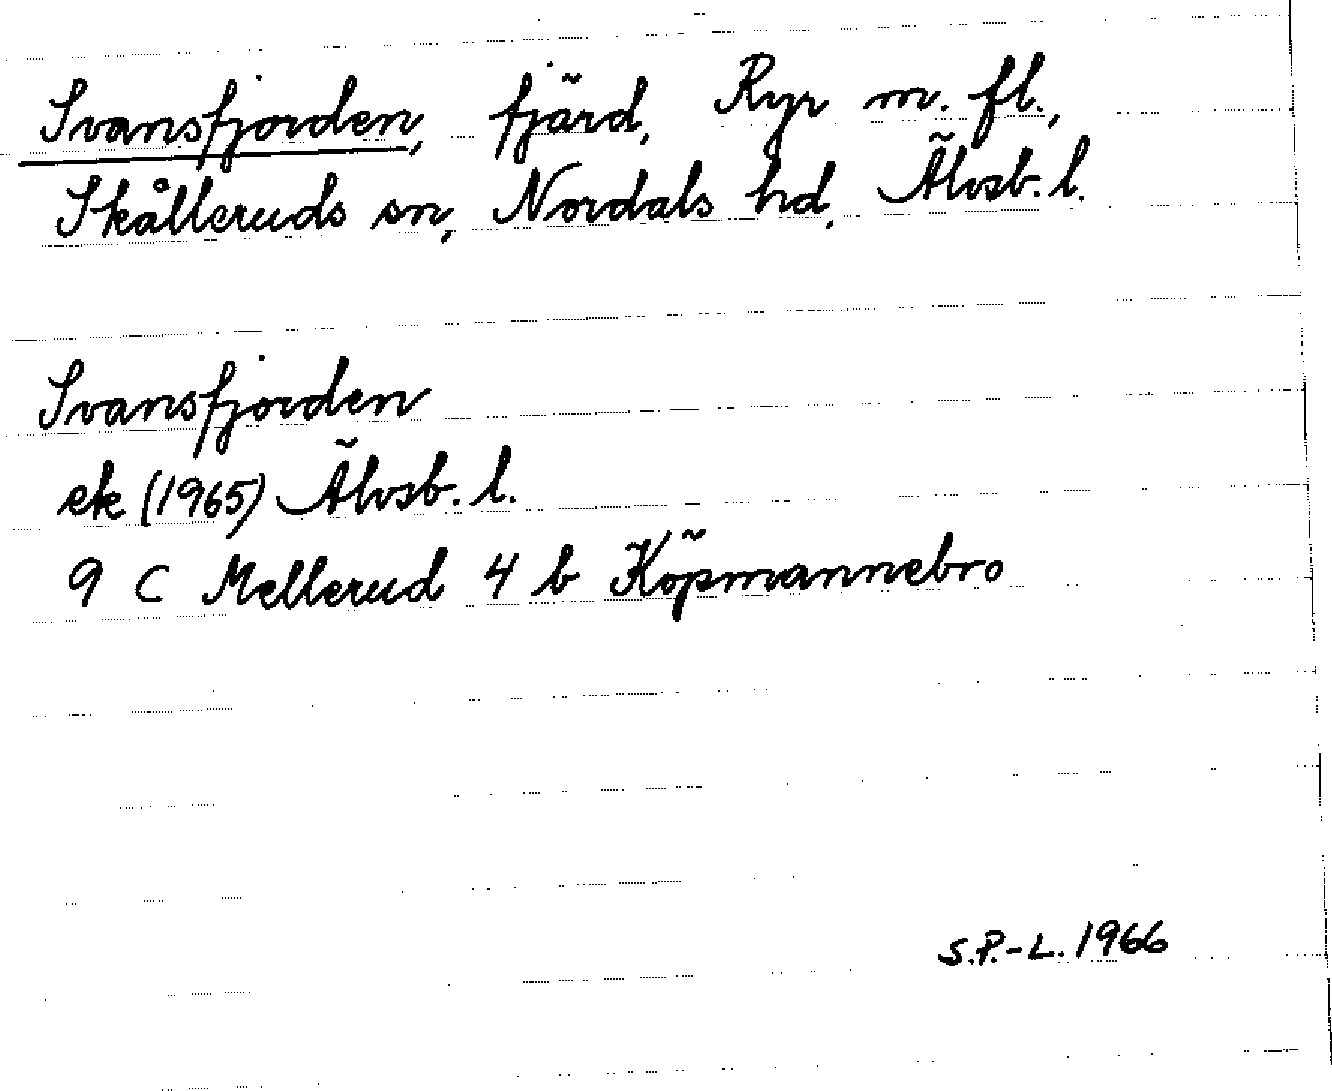 Svansfjorden, fjärd, Ryr m. fl.,
Skålleruds sn, Nordals hd, Älvsb. l.
Svansfjorden
ek (1965) Älvsb. l.
9 C Mellerud 4 b Köpmannebro
S.P.-L. 1966